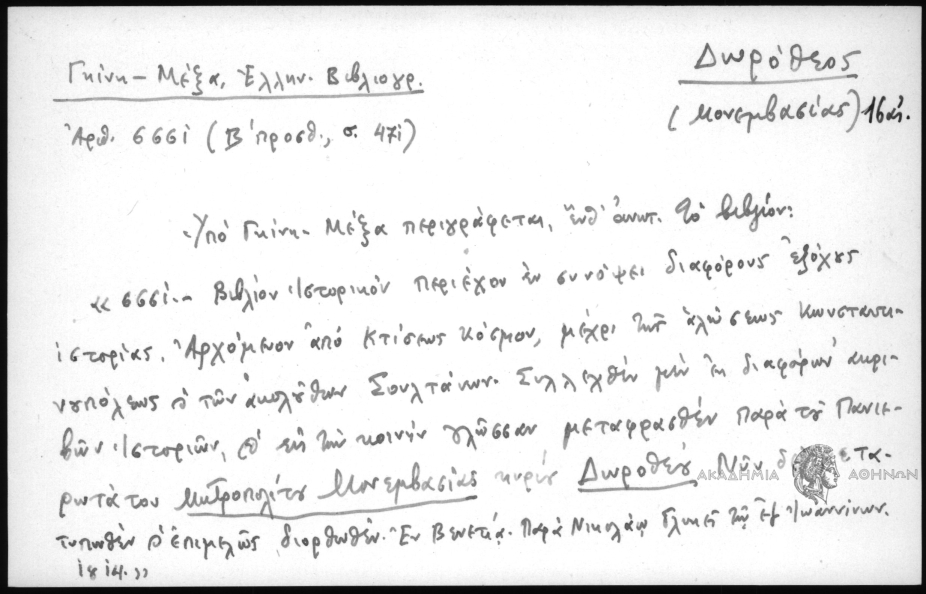 Γκίνη - Μέξα, Ἑλλην. Βιβλιογρ.
Δωρόθεος
(Μονεμβασίας) 16 αἰ.
Ἀριθ. 6661 (Β' προσθ., σ. 471)
Ὑπό Γκίνη - Μέξα περιγράφεται, ἔνθ' ἀνωτ. τό βιβλίον:
« 6661.- Βιβλίον Ἱστορικόν περιέχον ἐν συνόψει διαφόρους ἐξόχους
ἱστορίας. Ἀρχόμενον ἀπό Κτίσεως Κόσμου, μέχρι τῆς ἁλώσεως Κωνσταντι-
νουπόλεως ϗ τῶν ἀκολούθων Σουλτάνων. Συλλεχθέν μέν ἐκ διαφόρων ἀκρι-
βῶν Ἱστοριῶν, ϗ εἰς τήν κοινήν γλῶσσαν μεταφρασθέν παρά τοῦ Πανιε-
ρωτάτου Μητροπολίτου Μονεμβασίας κυρίου Δωροθέου Νῦν μετα-
τυπωθέν ϗ ἐπιμελῶς διορθωθέν. Ἐν Βενετίᾳ. Παρά Νικολάῳ Γλυκεῖ τῷ ἐξ Ἰωαννίνων.
1814.»
ΑΚΑΔΗΜΙΑ ΑΘΗΝΩΝ